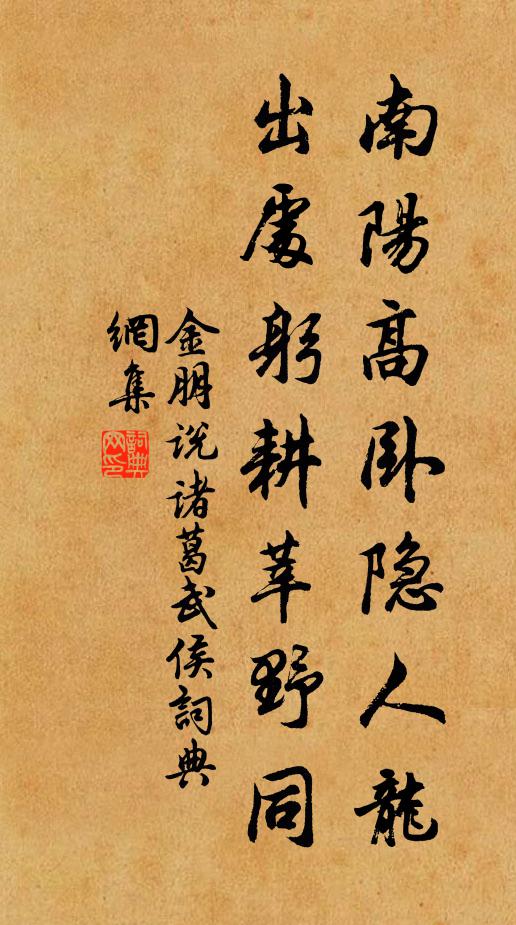 南陽高卧隐人龍
出處躬耕莘野同
金朋说诸葛武侯詞典
網集
詞典
网印